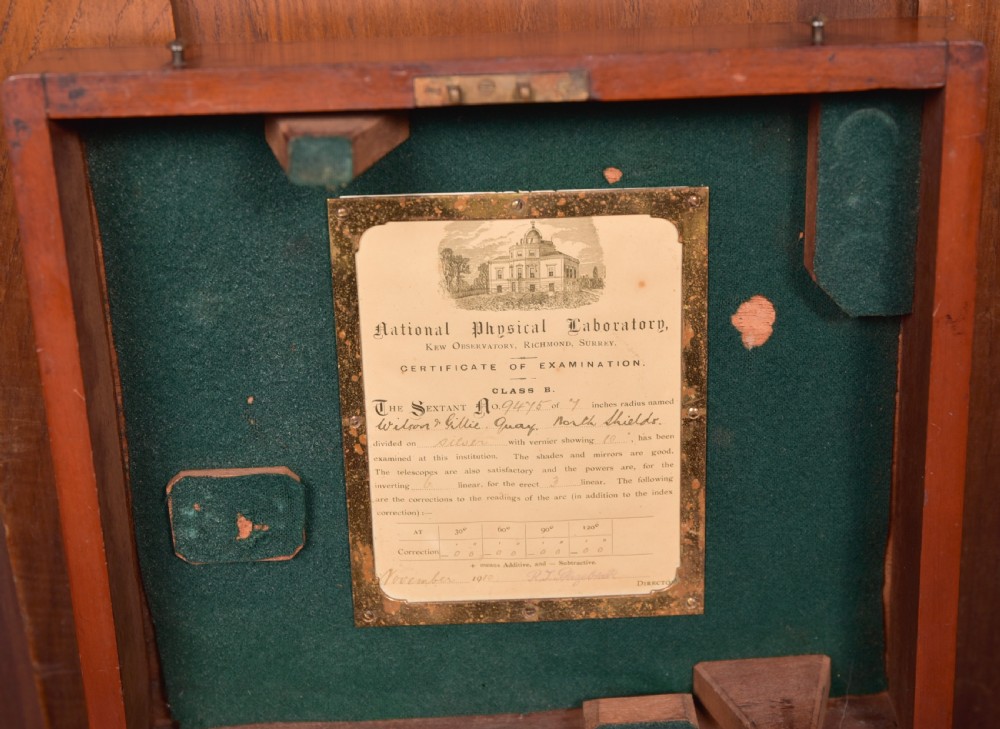 National Physical Laboratory,
Kew Observatory, Richmond, Surrey.
CERTIFICATE OF EXAMINATION.
CLASS B.
The Sextant No. 9475 of 7 inches radius named
Wilson & Gillie. Quay. North Shields.
divided on silver with vernier showing 10", has been
examined at this institution. The shades and mirrors are good.
The telescopes are also satisfactory and the powers are, for the
inverting 6 linear, for the erect 3 linear. The following
are the corrections to the readings of the arc (in addition to the index
correction):—
AT 30° 60° 90° 120°
' " ' " ' " ' "
Correction -0 0 -0 0 -0 0 -0 0
+ means Additive, and — Subtractive
November 1910
DIRECTO